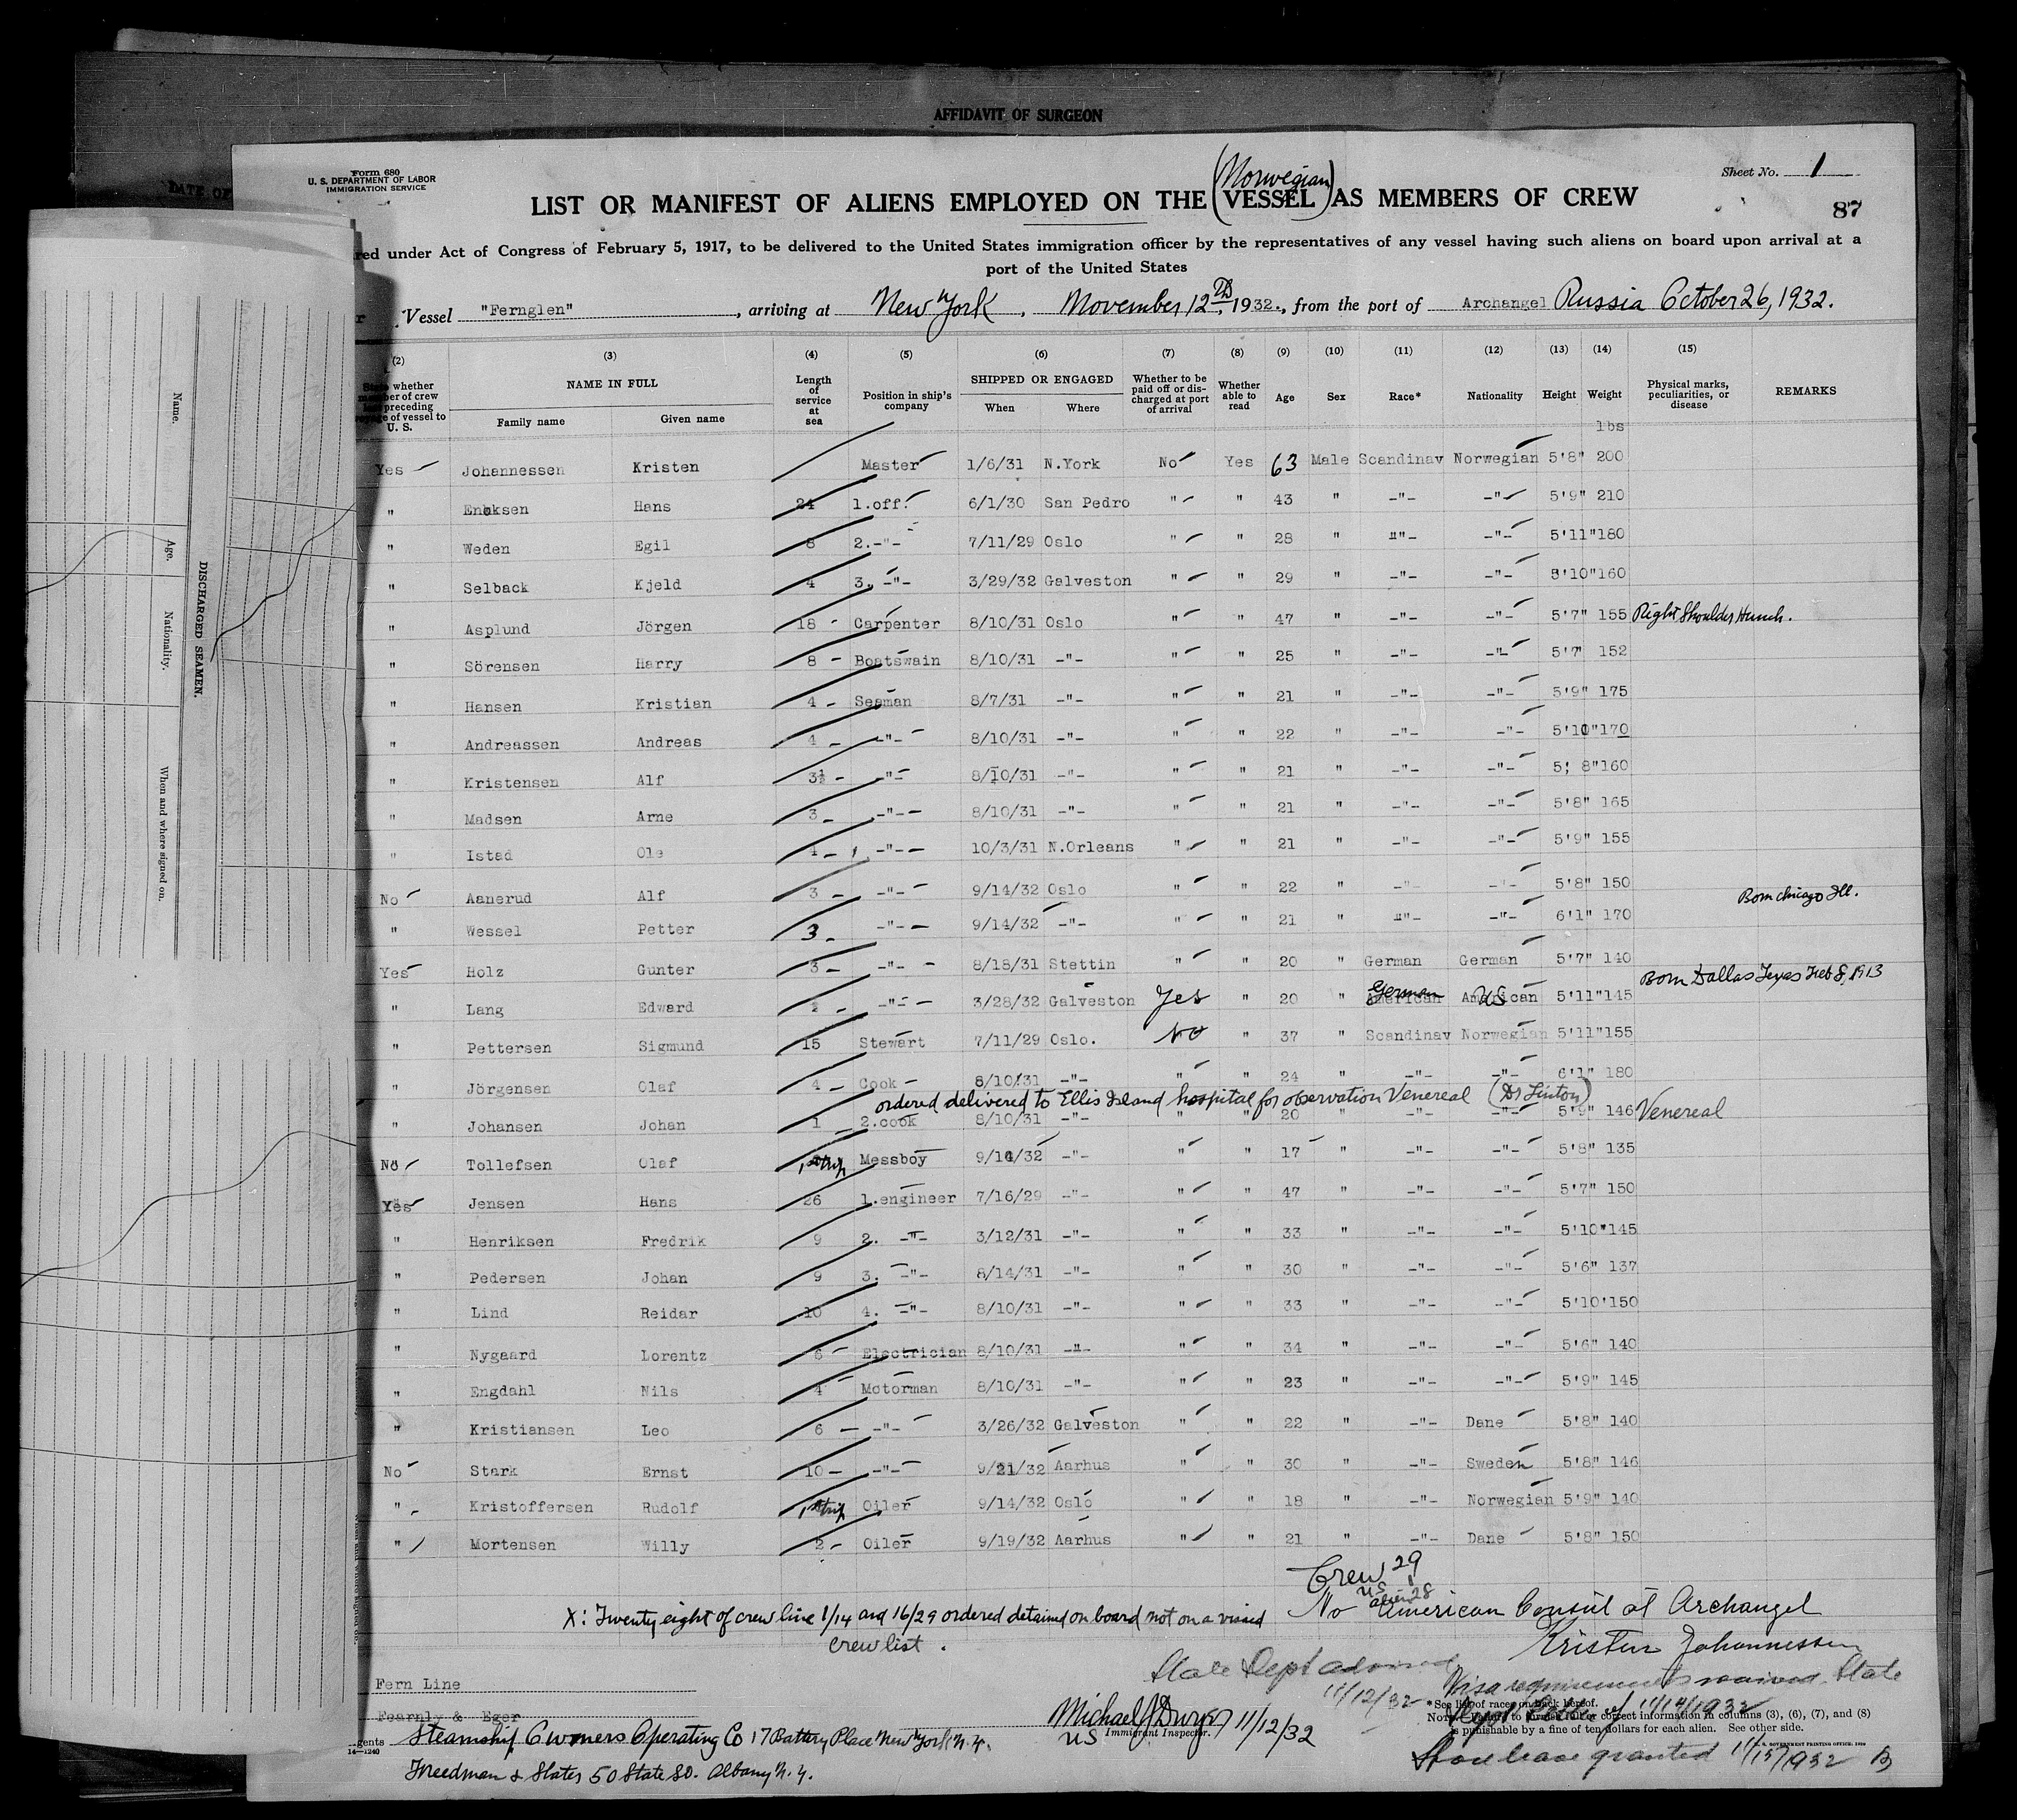 AFFIDAVIT OF SURGEON
DATE OF
Form 680
U. S. DEPARTMENT OF LABOR
IMMIGRATION SERVICE
Sheet No. 1
(Norwegian)
LIST OR MANIFEST OF ALIENS EMPLOYED ON THE VESSEL AS MEMBERS OF CREW
87
red under Act of Congress of February 5, 1917, to be delivered to the United States immigration officer by the representatives of any vessel having such aliens on board upon arrival at a
port of the United States
Vessel "Fernglen", arriving at New York, November 12th, 1932., from the port of Archangel Russia October 26, 1932.
(2) (3) (4) (5) (6) (7) (8) (9) (10) (11) (12) (13) (14) (15)
State whether member of crew last preceding voyage of vessel to U. S.
NAME IN FULL
Family name Given name
Length of service at sea
Position in ship's company
SHIPPED OR ENGAGED
When Where
Whether to be paid off or discharged at port of arrival
Whether able to read
Age Sex Race* Nationality Height Weight
Physical marks, peculiarities, or disease
REMARKS
lbs
Yes Johannessen Kristen Master 1/6/31 N.York No Yes 63 Male Scandinav Norwegian 5'8" 200
" Enoksen Hans 24 1.off. 6/1/30 San Pedro " " 43 " -"- -"- 5'9" 210
" Weden Egil 8 2.-"- 7/11/29 Oslo " " 28 " -"- -"- 5'11" 180
" Selback Kjeld 4 3. -"- 3/29/32 Galveston " " 29 " -"- -"- 5'10" 160
" Asplund Jörgen 18 Carpenter 8/10/31 Oslo " " 47 " -"- -"- 5'7" 155 Right Shoulder Hunch.
" Sörensen Harry 8 Boatswain 8/10/31 -"- " " 25 " -"- -"- 5'7 152
" Hansen Kristian 4 Seaman 8/7/31 -"- " " 21 " -"- -"- 5'9" 175
" Andreassen Andreas 4 -"- 8/10/31 -"- " " 22 " -"- -"- 5'10" 170
" Kristensen Alf 3½ -"- 8/10/31 -"- " " 21 " -"- -"- 5' 8" 160
" Madsen Arne 3 -"- 8/10/31 -"- " " 21 " -"- -"- 5'8" 165
" Istad Ole -"- 10/3/31 N.Orleans " " 21 " -"- -"- 5'9" 155
No Aanerud Alf 3 -"- 9/14/32 Oslo " " 22 " -"- -"- 5'8" 150
Born Chicago Ill.
" Wessel Petter 3 -"- 9/14/32 -"- " " 21 " -"- -"- 6'1" 170
Yes Holz Gunter 3 -"- 8/18/31 Stettin " " 20 " German German 5'7" 140
Born Dallas Texas Feb 8, 1913
" Lang Edward ½ -"- 3/28/32 Galveston Yes " 20 " German American US 5'11" 145
" Pettersen Sigmund 15 Stewart 7/11/29 Oslo. No " 37 " Scandinav Norwegian 5'11" 155
" Jörgensen Olaf 4 Cook 8/10/31 -"- " " 24 " -"- -"- 6'1" 180
ordered delivered to Ellis Island hospital for observation Venereal (Dr Linton)
" Johansen Johan 1 2.cook 8/10/31 -"- " " 20 " -"- -"- 5'9" 146 Venereal
No Tollefsen Olaf 1st trip Messboy 9/14/32 -"- " " 17 " -"- -"- 5'8" 135
Yes Jensen Hans 26 1.engineer 7/16/29 -"- " " 47 " -"- -"- 5'7" 150
" Henriksen Fredrik 9 2. -"- 3/12/31 -"- " " 33 " -"- -"- 5'10" 145
" Pedersen Johan 9 3. -"- 8/14/31 -"- " " 30 " -"- -"- 5'6" 137
" Lind Reidar 10 4. -"- 8/10/31 -"- " " 33 " -"- -"- 5'10' 150
" Nygaard Lorentz 6 Electrician 8/10/31 -"- " " 34 " -"- -"- 5'6" 140
" Engdahl Nils 4 Motorman 8/10/31 -"- " " 23 " -"- -"- 5'9" 145
" Kristiansen Leo 6 -"- 3/26/32 Galveston " " 22 " -"- Dane 5'8" 140
No Stark Ernst 10 -"- 9/21/32 Aarhus " " 30 " -"- Sweden 5'8" 146
" Kristoffersen Rudolf 1st trip Oiler 9/14/32 Oslo " " 18 " -"- Norwegian 5'9" 140
" Mortensen Willy 2 Oiler 9/19/32 Aarhus " " 21 " -"- Dane 5'8" 150
Crew 29
US 1
alien 28
No American Consul at Archangel
X: Twenty eight of crew line 1/14 and 16/29 ordered detained on board not on a visaed
crew list.
Kristen Johannessen
State Dept advised
11/12/32
Visa requirements waived State
Dept of 11/14/1932
Fern Line
Fearnly & Eger
Steamship Owners Operating Co 17 Battery Place New York N.Y.
Freedman & Slater 50 State St. Albany N.Y.
gents
14-1240
Michael J Dwyer 11/12/32
US Immigrant Inspector.
*See list of races on back hereof.
Note.—Failure to furnish full or correct information in columns (3), (6), (7), and (8)
is punishable by a fine of ten dollars for each alien. See other side.
U. S. GOVERNMENT PRINTING OFFICE
Shore leave granted 11/15/1932 B
DISCHARGED SEAMEN.
Name.
Age.
Nationality.
When and where signed on.